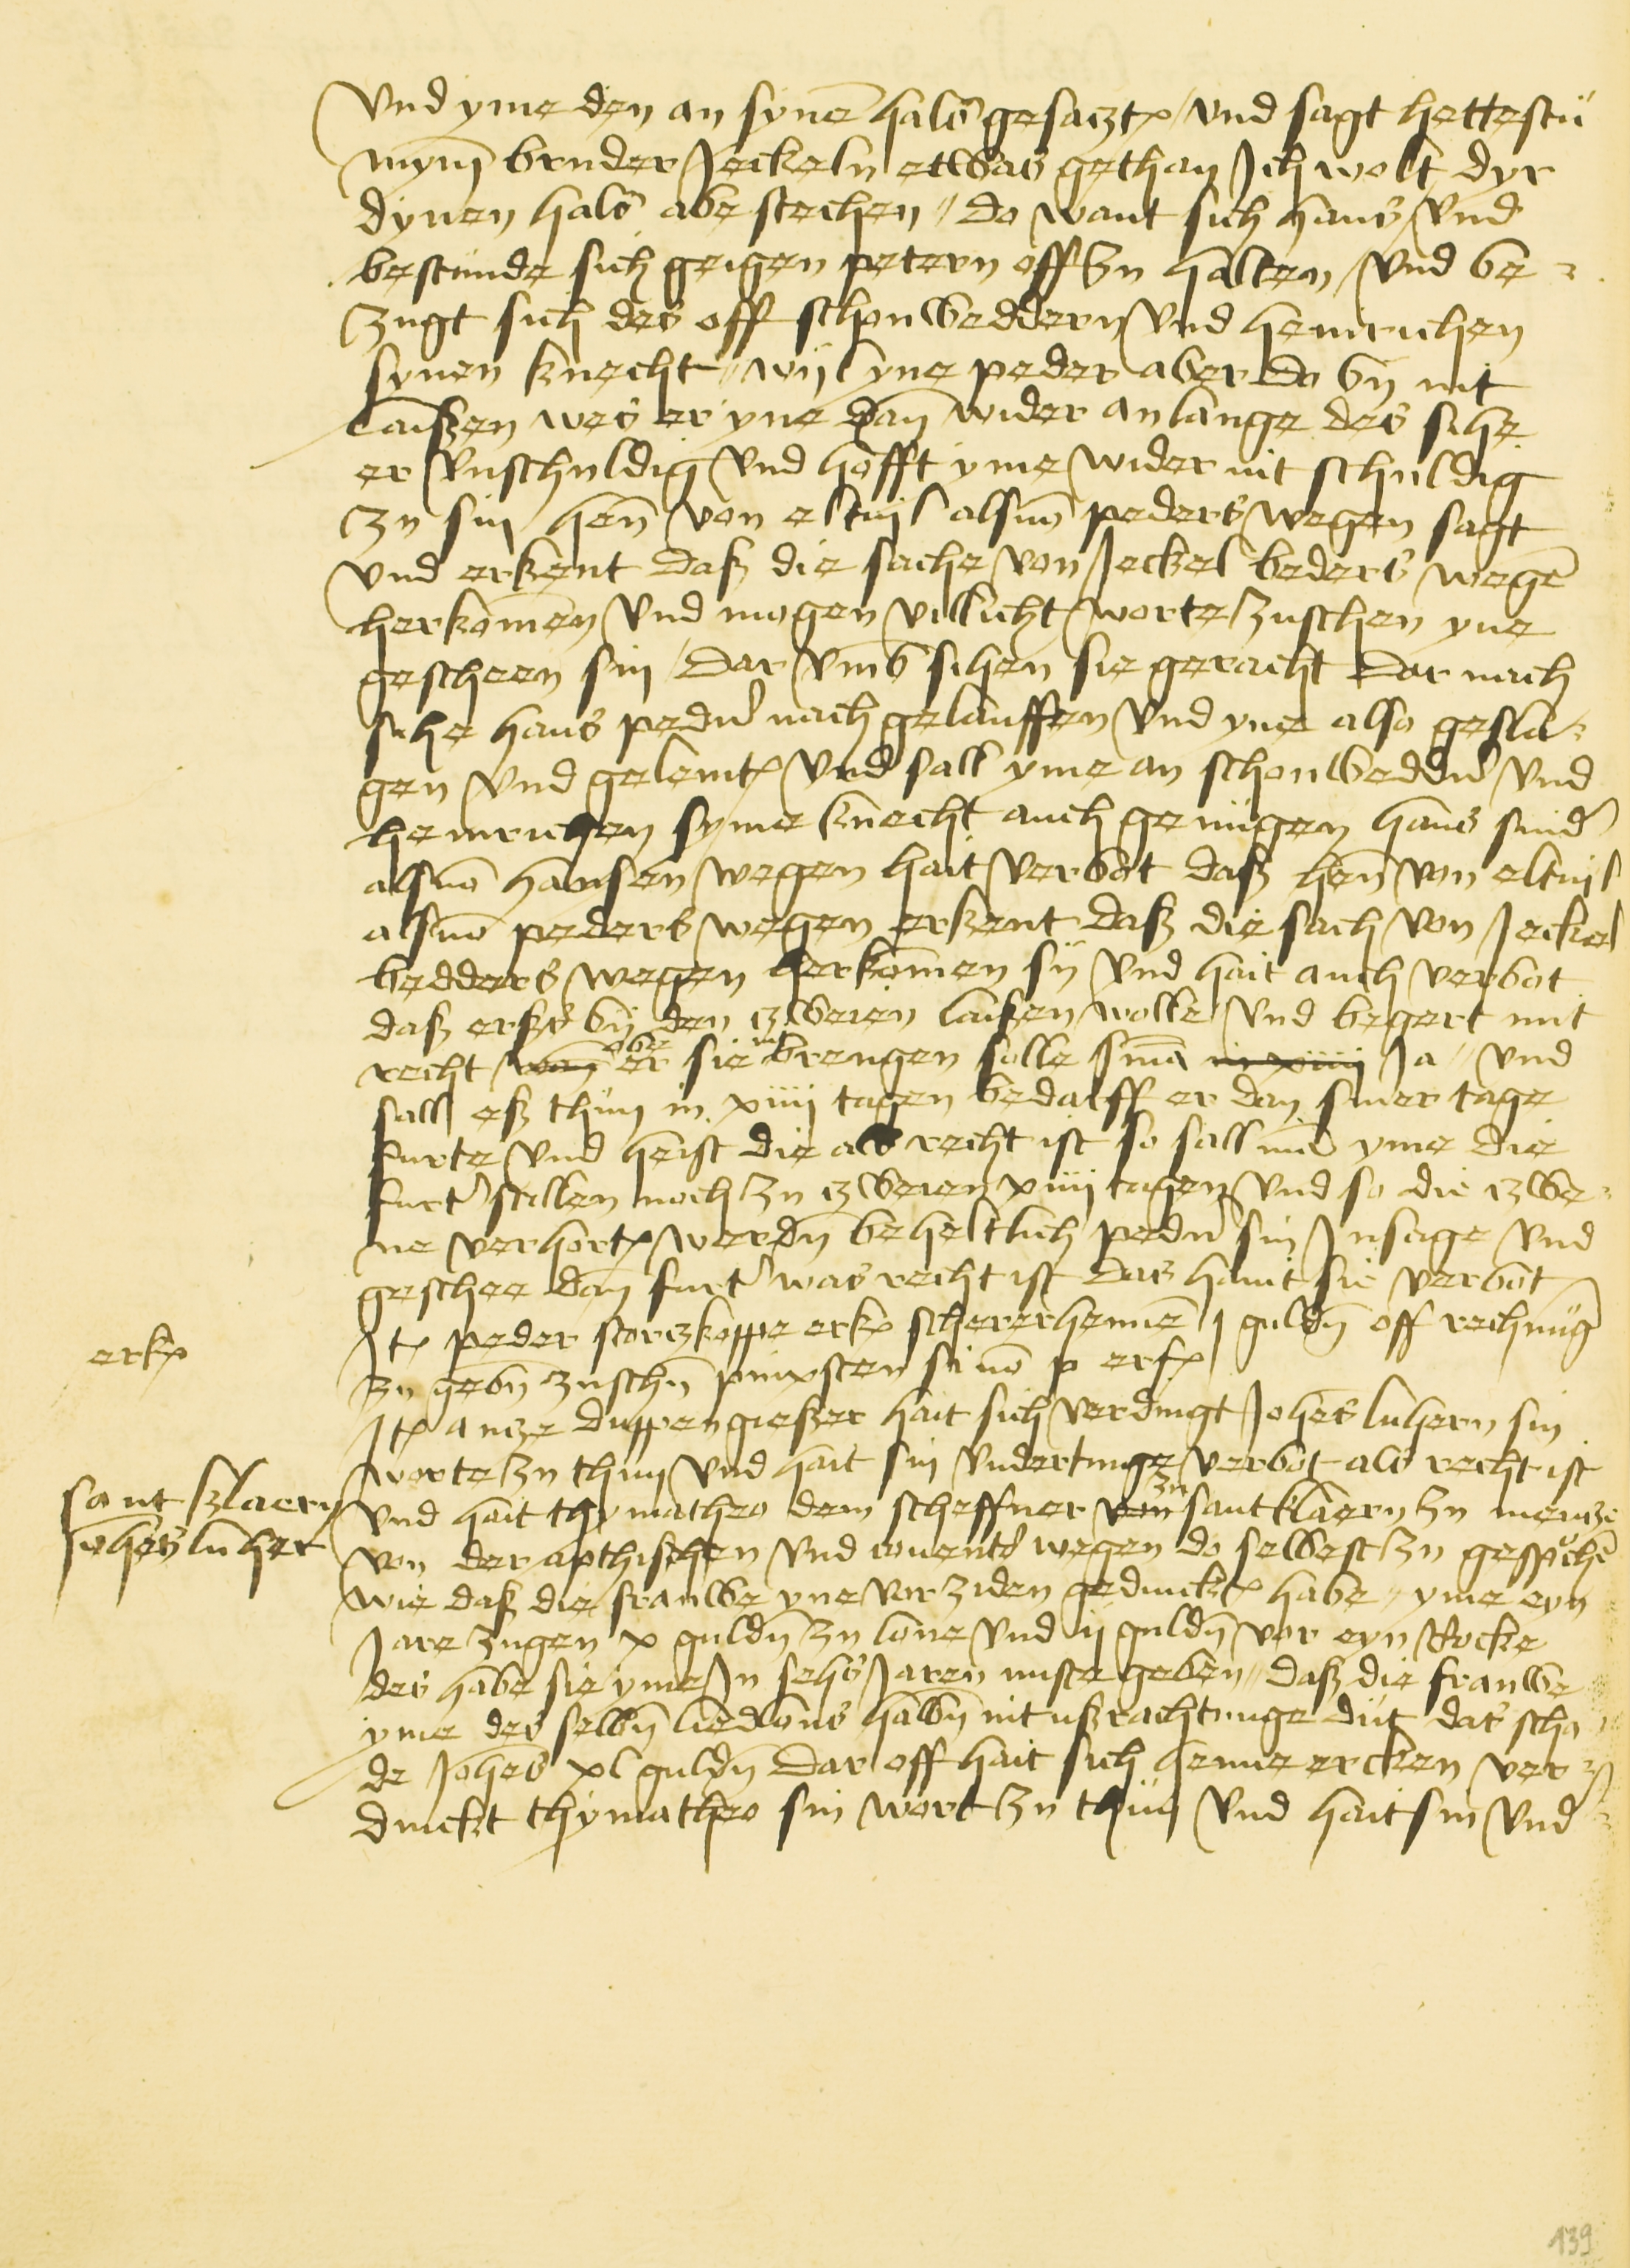 Vnd yme den an synē halß gesatzt vnd sagt hettestu
mynē bruder Jeckeln etwas gethan Jch wolt dyr
dynen halß abe stechen do want sich hans vnd
bestunde sich geigen petern off zu halten vnd be-
zugt sich des off schonwedern vnd heinrichen
synen knecht wil yne peder aber do by nit
laißen wes er yne dan wider anlange des sihe
er vnschuldig vnd hofft yme wider nit schuldig
zu sin hen von eltuil als von peders wegen sagt
vnd erkent daß die sache von Jeckel beders wegē
herkomen vnd mogen villicht worte zuschen yne
gescheen sin dar vmb sihen sie geracht dar nach
sihe hans pedern nach gelauffen vnd yne also gesla-
gen vnd gelemt vnd sall yme an schonweddern vnd
heinrichen syme knecht auch genugen hans sinder
als von hansen wegen hait verbot daß hen von eltuil
als von peders wegen erkent daß die sach von Jeckel
bedders wegen herkomen sy vnd hait auch verbot
daß erß by den zweien laißen wolle vnd begert mit
recht wan obe er sie nit brengen solle sma in xiiii Ja vnd
sall eß thun in xiiii tagen bedarff er dan siner tage
furte vnd heist die als recht ist so sall mā yme die
furt stillen noch zu zweien xiiii tagen vnd so die zwe-
ne verhort werdn beheltlich pedern sin Jnsage vnd
geschee dan furt was recht ist das hant sie verbot
Jt peder storczkoppe erk schererhennē j guldn off rechnūg
zu gebn zuschn pinxsten si nō p erf
Jt antze duppengießer hait sich verdingt Johes luhern sin
worte zu thun vnd hait sin vnderdinge verbot als recht ist
vnd hait thymatheo dem scheffner von zu sant klaern zu mentze
von der apthischen vnd couents wegen do selbest zu gesprochē
wie daß die frauwe yne vor ziden gedinckt habe yme eyn
Jare zugen x guldn zu lone vnd ij guldn vor eyn Rocke
des habe sie yme Jn sehs Jaren nuste geben daß die frauwe
yme des selbn liedlons halbn nit ußrachtunge dut das scha
de Johes xl guldn dar off hait sich henne ercken ver-
dinckt thymatheo sin wort zu thun vnd hait sin vnd
erk
sant klaern
Johes luher
139